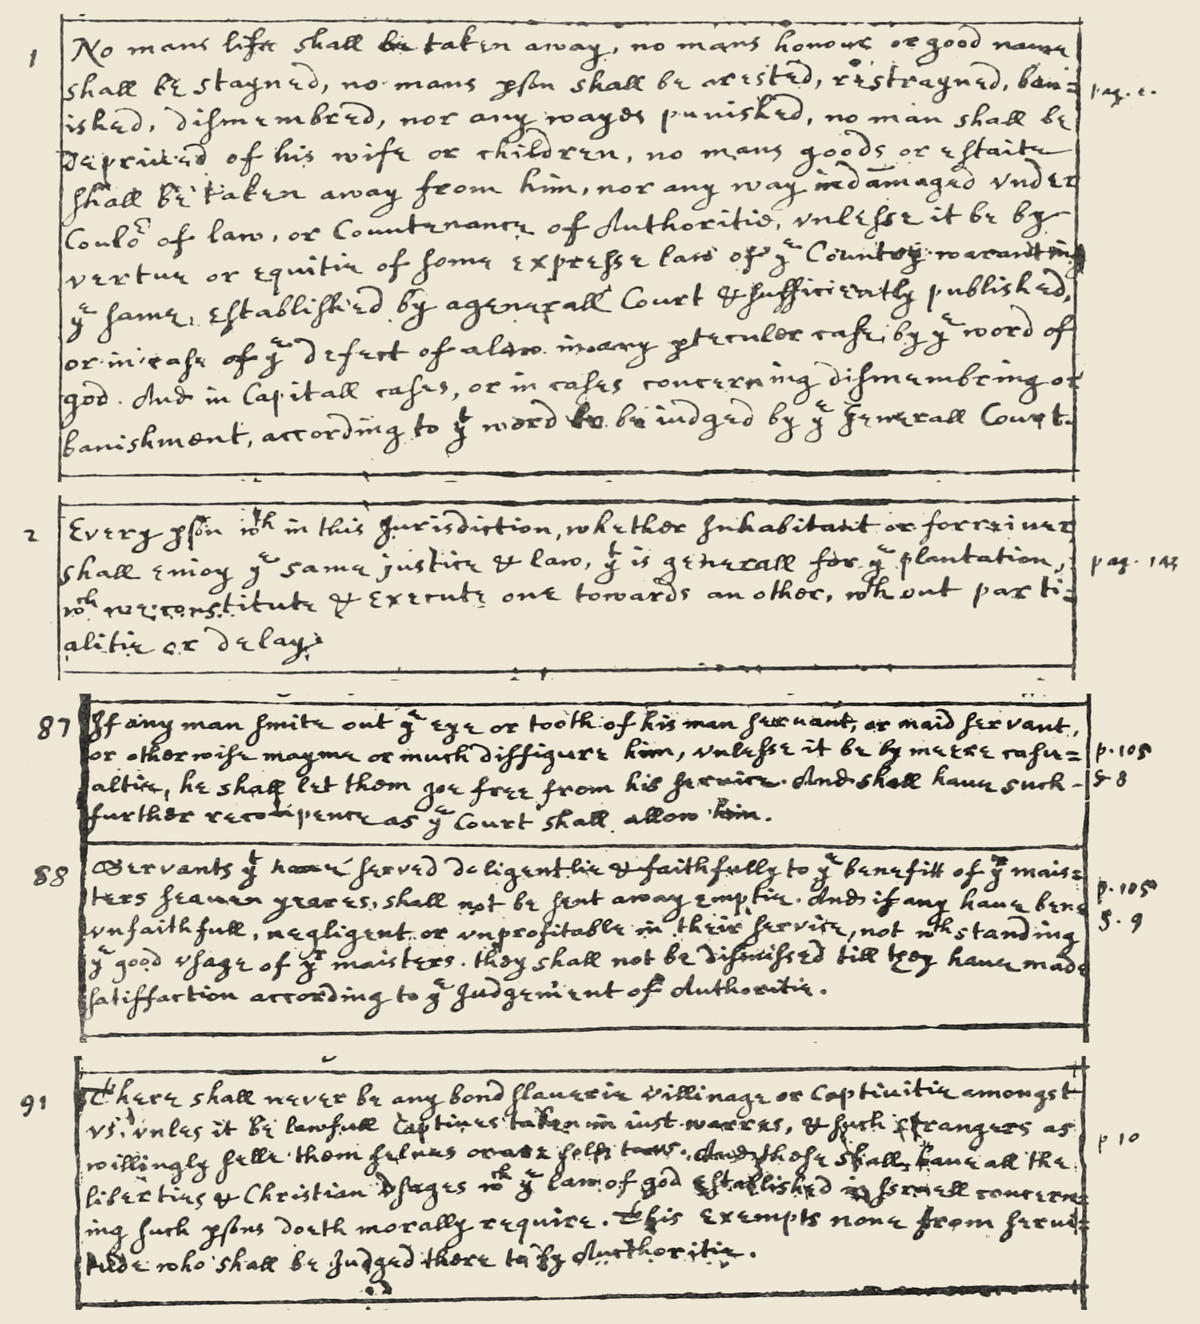 1 No mans life shall be taken away, no mans honour or good name
shall be stayned, no mans pson shall be arested, restrayned, ban= pag. 1.
ished, dismembred, nor any wayes punished, no man shall be
deprived of his wife or children, no mans goods or estaite
shall be taken away from him, nor any way indamaged vnder
Coulor of law, or Countenance of Authoritie, vnlesse it be by
vertue or equitie of some expresse law of yᵉ Country waranting
yᵉ same, established by a generall Court & sufficiently published,
or in case of yᵉ defect of a law in any pteculer case by yᵉ word of
god. And in Capitall cases, or in cases concerning dismembring or
banishment, according to yᵗ word to be iudged by yᵉ Generall Court.
2 Every pson wᵗʰin this Jurisdiction, whether Inhabitant or forreiner
shall enioy yᵉ same justice & law, yᵗ is generall for yᵉ plantation, pag. 143
wᶜʰ we constitute & execute one towards another, wᵗʰout parti=
alitie or delay.
87 If any man smite out yᵉ eye or tooth of his man servant, or maid servant,
or otherwise mayme or much diffigure him, vnlesse it be by meere casu= p. 105
altie, he shall let them goe free from his service. And shall have such - § 8
further recompence as yᵉ Court shall allow him.
88 Servants yᵗ have served deligentlie & faithfully to yᵉ benefitt of yʳ mais=
ters seaven yeares, shall not be sent away emptie. And if any have bene p. 105
vnfaithfull, negligent or vnprofitable in their service, not wᵗʰstanding § . 9
yᵉ good vsage of yʳ maisters. they shall not be dismissed till they have made
satisfaction according to yᵉ Judgement of Authoritie.
91 There shall never be any bond slaverie villinage or Captivitie amongst
vs, vnles it be lawfull Captives taken in iust warres, & such strangers as p 10
willingly selle themselves or are sold to us. And these shall have all the
liberties & Christian vsages wᶜʰ yᵉ law of god established in Israell concern=
ing such psons doeth morally require. This exempts none from servi=
tude who shall be Judged there to by Authoritie.